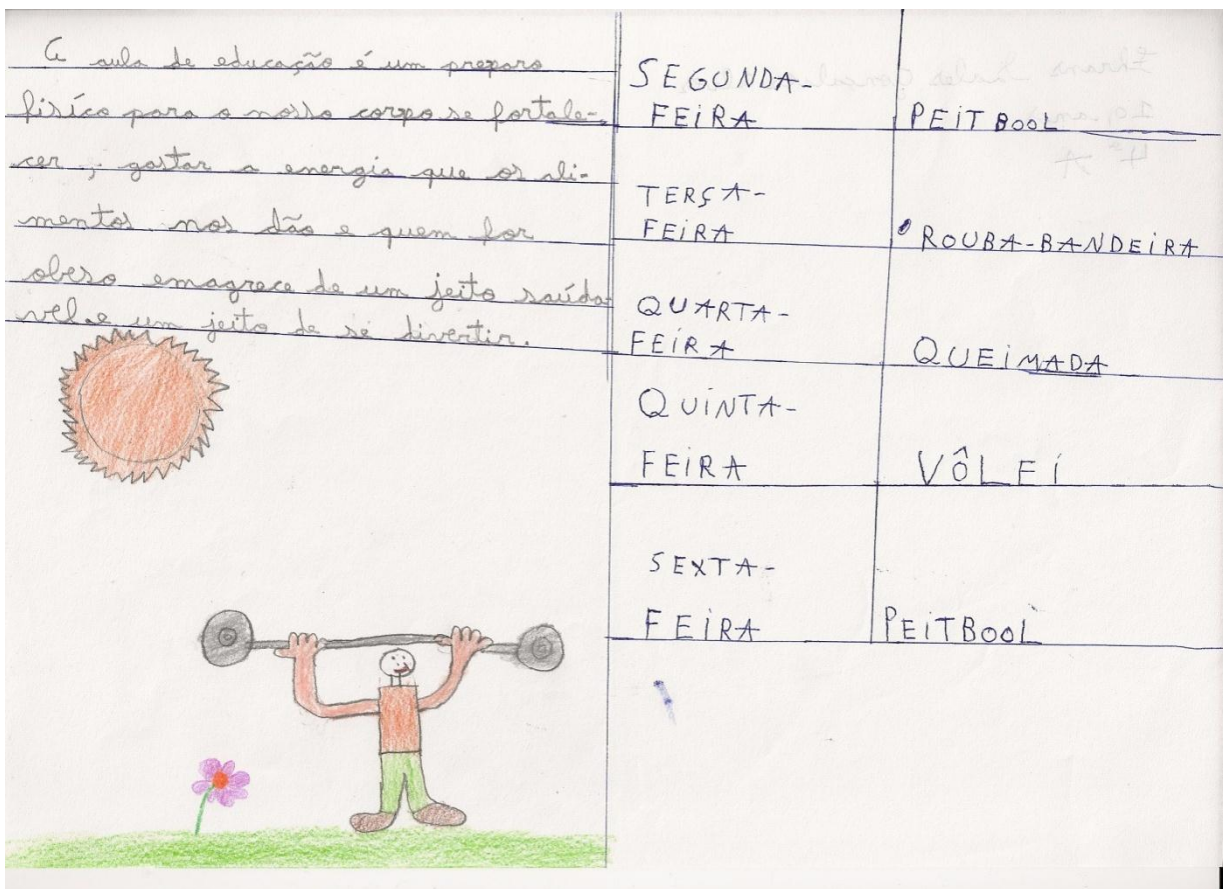 A aula de educação é um preparo
fisíco para o nosso corpo se fortale-
cer, gastar a energia que os ali-
mentos nos dão e quem for
obeso emagrece de um jeito saúda
vel e um jeito de se divertir.
SEGUNDA-
FEIRA PEITBOOL
TERÇA-
FEIRA ROUBA-BANDEIRA
QUARTA-
FEIRA QUEIMADA
QUINTA-
FEIRA VÔLEI
SEXTA-
FEIRA PEITBOOL